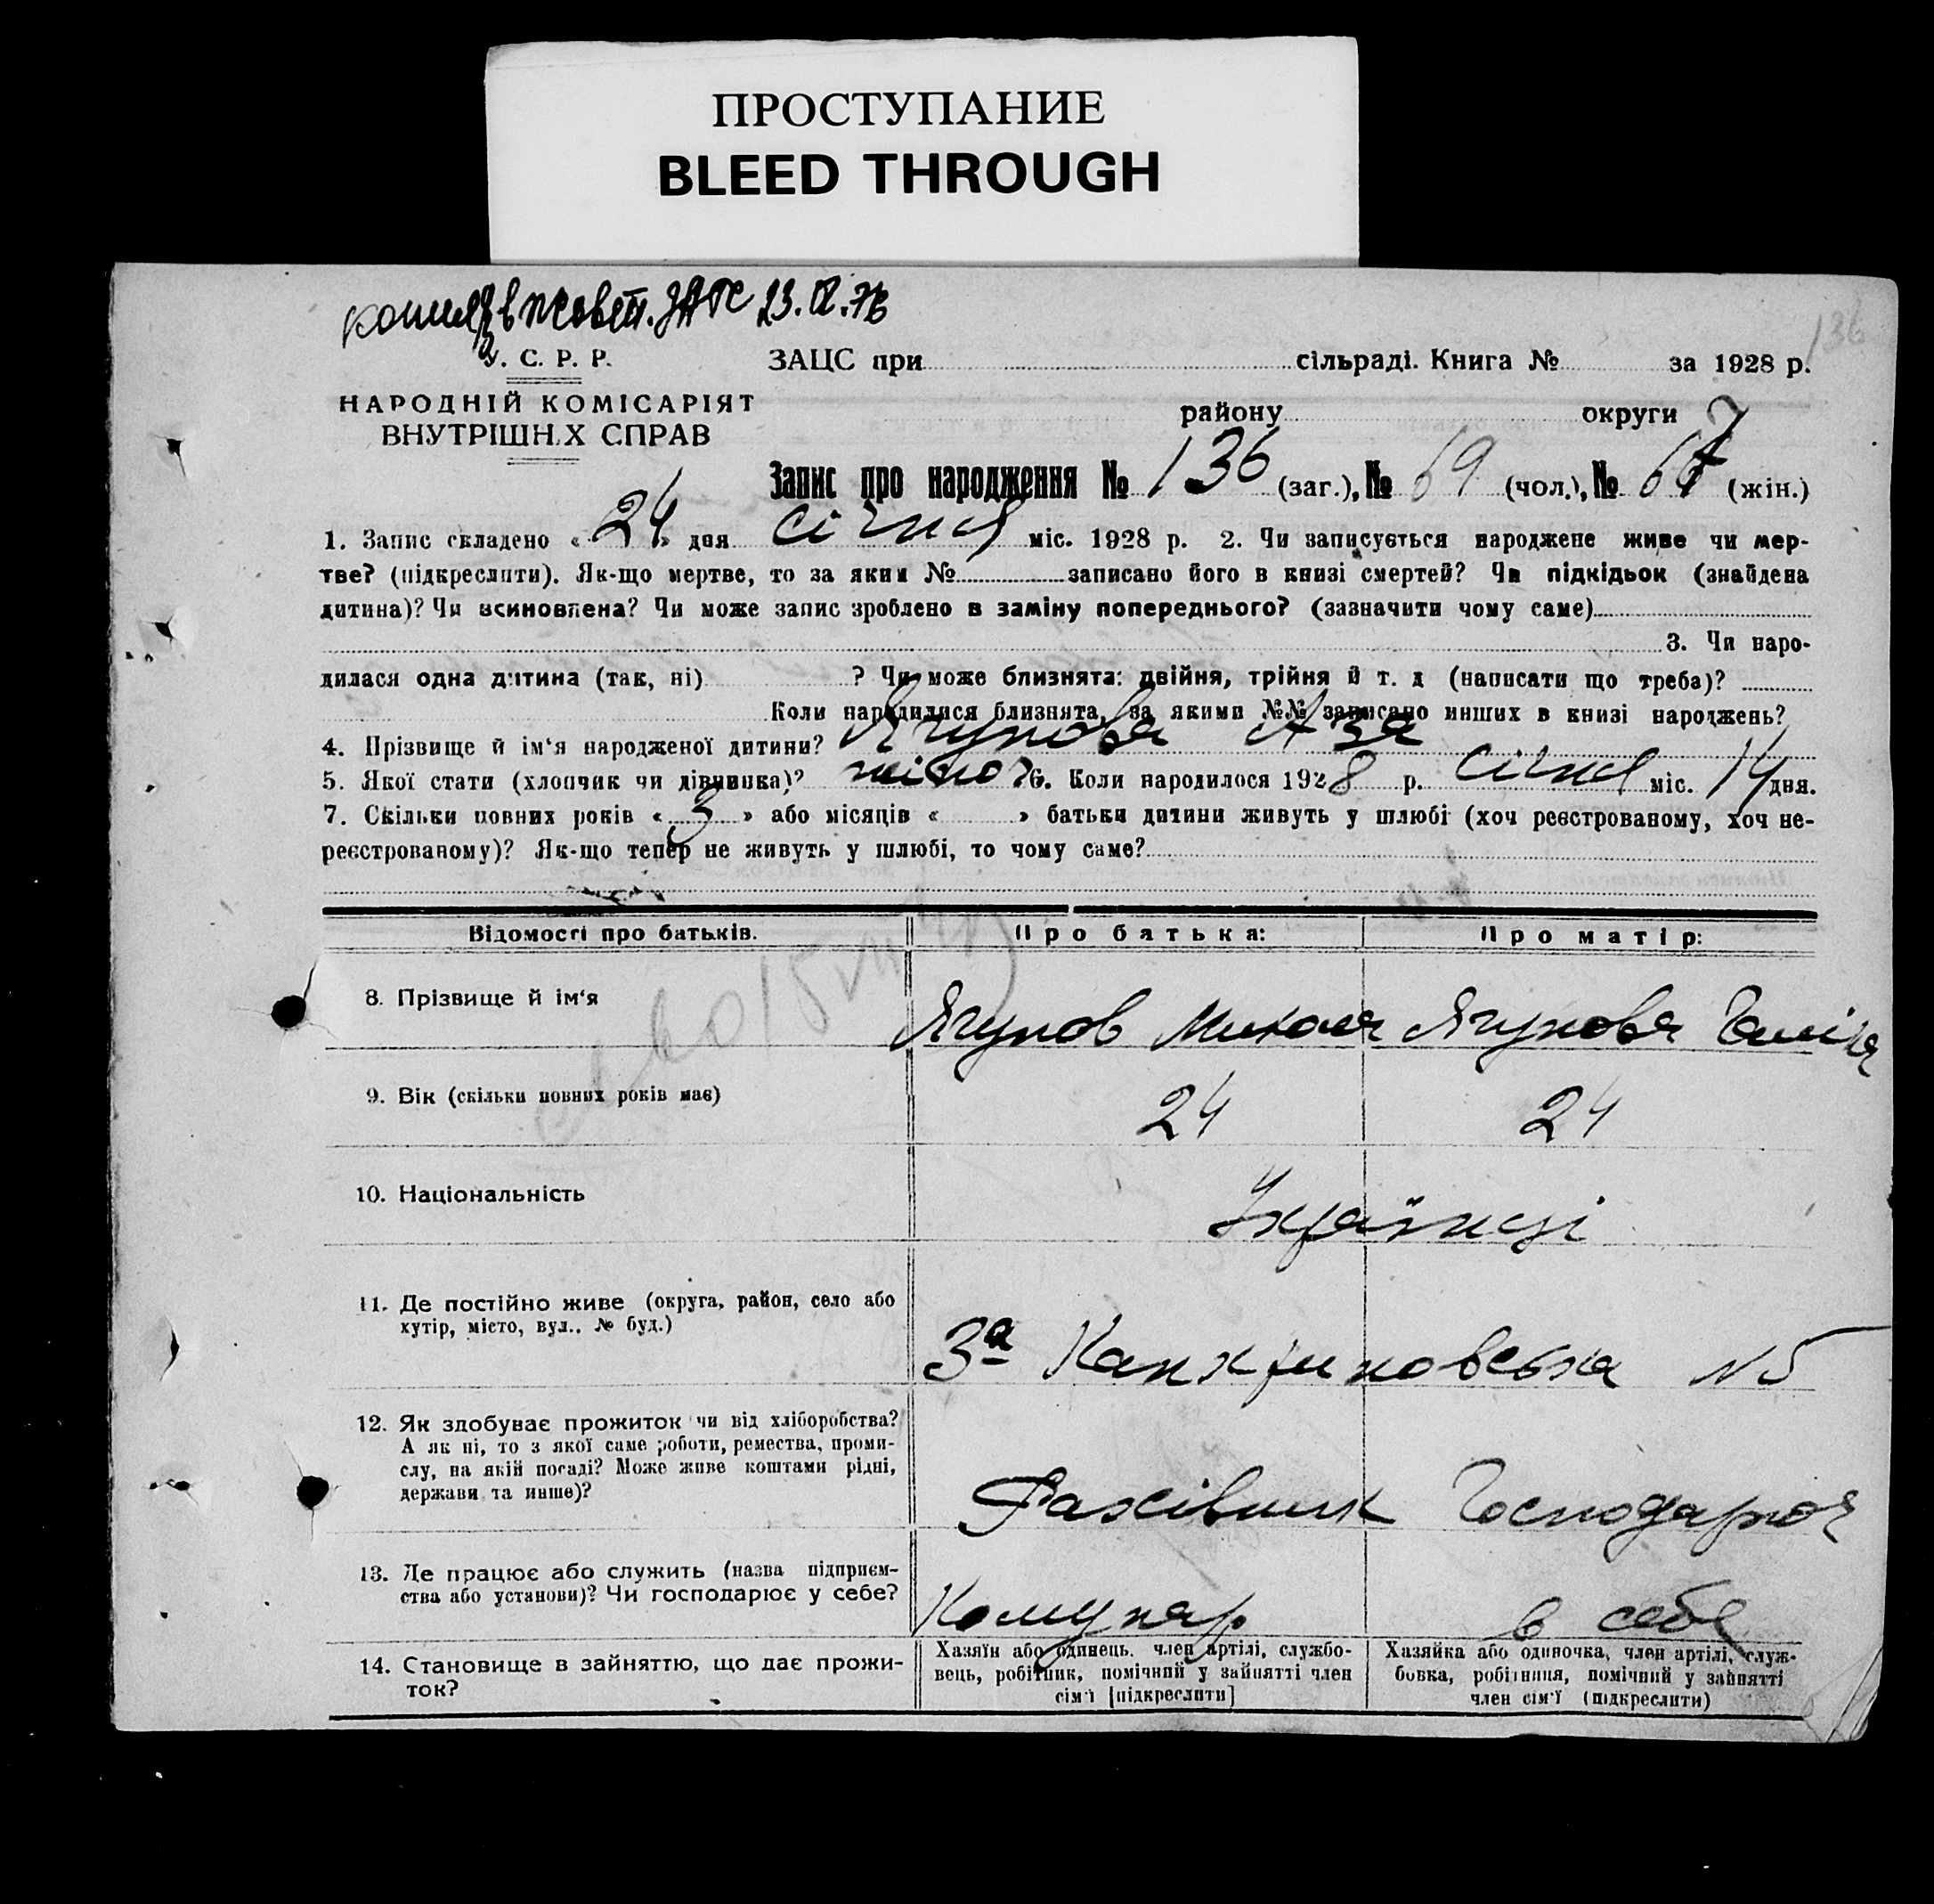 ПРОСТУПАНИЕ
BLEED THROUGH
136
У. С. Р. Р.
ЗАЦС при сільраді. Книга № за 1928 р.
НАРОДНІЙ КОМІСАРІЯТ
ВНУТРІШНіХ СПРАВ
району округи
Запис про народження № 136 (заг.), № 69 (чол.), № 67 (жін.)
1. Запис складено « 24 » дня січня міс. 1928 р. 2. Чи записується народжене живе чи мер-
тве? (підкреслити). Як-що мертве, то за яким № записано його в книзі смертей? Чи підкідьок (знайдена
дитина)? Чи всиновлена? Чи може запис зроблено в заміну попереднього? (зазначити чому саме)
3. Чи наро-
дилася одна дитина (так, ні) ? Чи може близнята: двійня, трійня й т. д (написати що треба)?
Коли народилися близнята, за якими №№ записано инших в книзі народжень?
4. Прізвище й ім‘я народженої дитини? Ягупова Аза
5. Якої стати (хлопчик чи дівчинка)? жіноч 6. Коли народилося 1928 р. січня міс. 14 дня.
7. Скільки повних років « 3 » або місяців « » батьки дитини живуть у шлюбі (хоч реєстрованому, хоч не-
реєстрованому)? Як-що тепер не живуть у шлюбі, то чому саме?
Відомості про батьків. Про батька: Про матір:
8. Прізвище й ім‘я Ягупов Микола Ягупова Галіна
9. Вік (скільки повних років має) 24 24
10. Національність Українці
11. Де постійно живе (округа, район, село або
хутір, місто, вул., № буд.)
3а Канкриновська №5
12. Як здобуває прожиток чи від хліборобства?
А як ні, то з якої саме роботи, ремества, проми-
слу, на якій посаді? Може живе коштами рідні,
держави та инше)?
Фахівник Господарює
13. Де працює або служить (назва підприєм-
ства або установи)? Чи господарює у себе?
Комунар в себе
14. Становище в зайняттю, що дає прожи-
ток?
Хазяїн або одинець, член артілі, службо-
вець, робітник, помічний у зайнятті член
сім‘ї [підкреслити]
Хазяйка або одиночка, член артілі, служ-
бовка, робітниця, помічний у зайнятті
член сім‘ї (підкреслити)